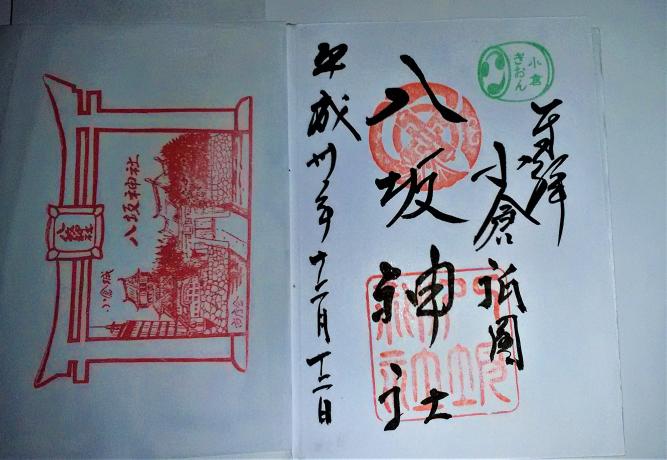 奉拝
小倉祇園
八坂神社
平成卅年十二月十二日
小倉
ぎおん
八坂神社
八坂神社
小倉城